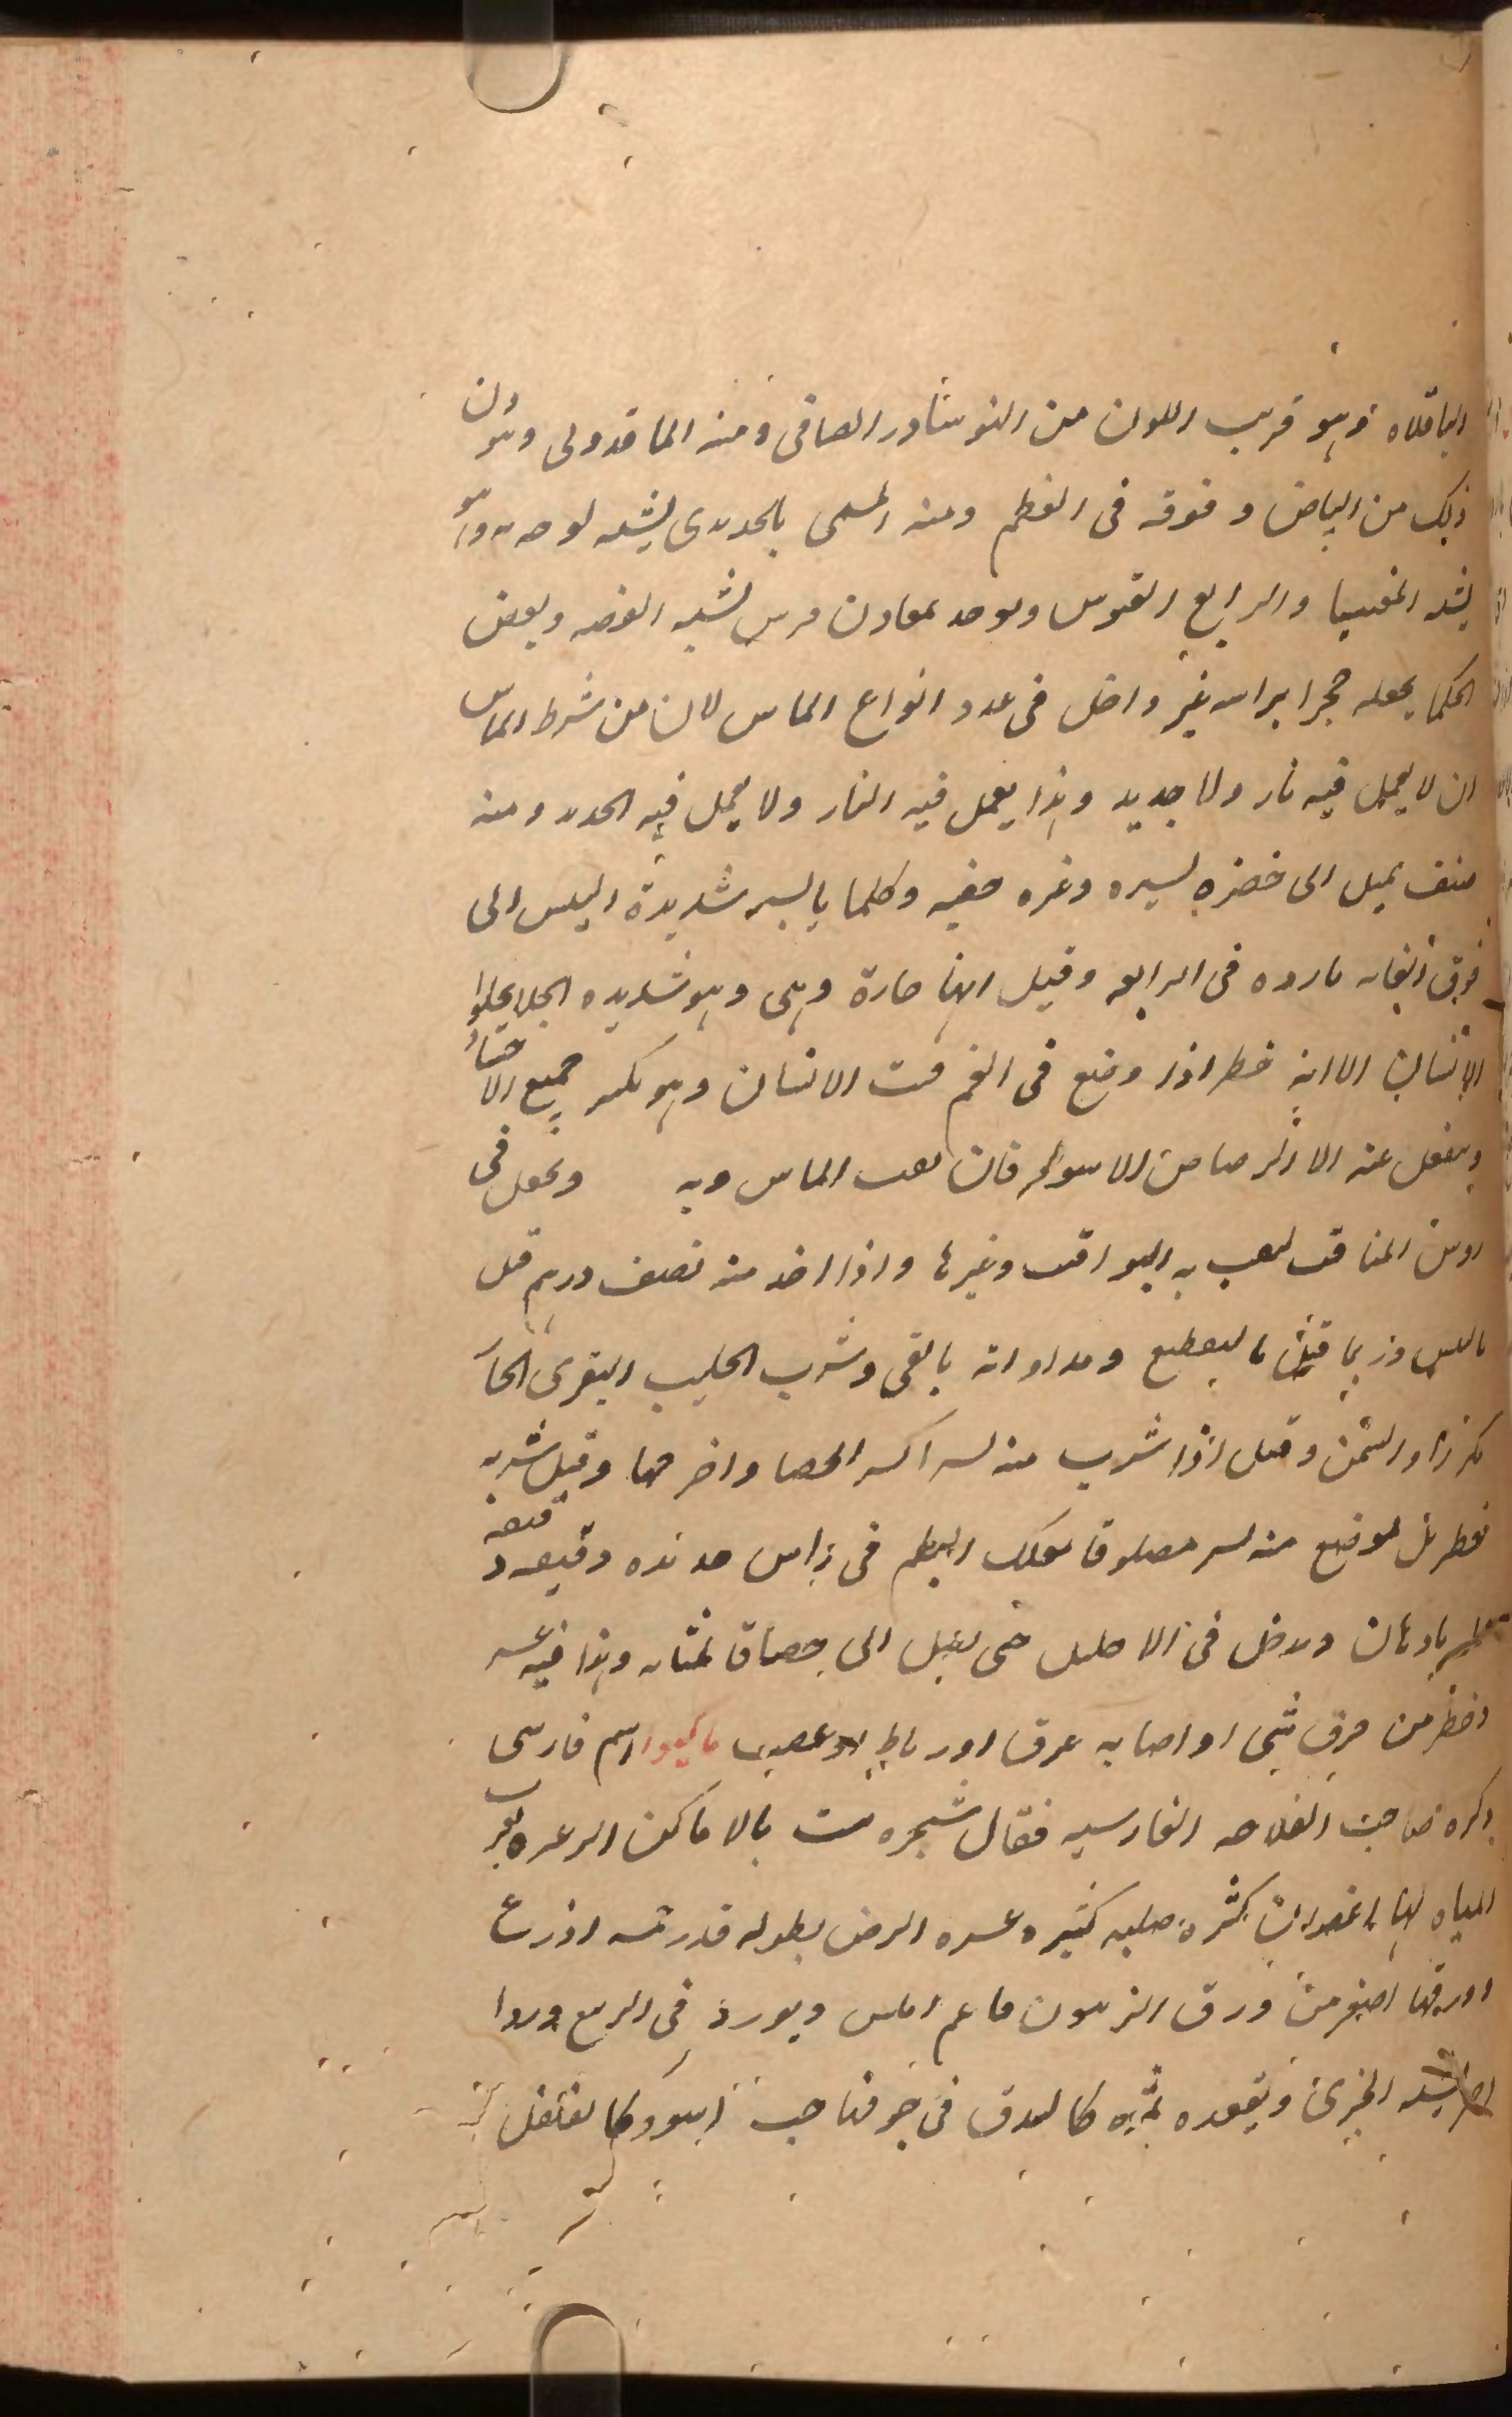 الباقلاه وهو قريب اللون من النوشادر الصافى ومنه الماقدونى وهو دون
ذلك من البياض وفوقه فى العظم ومنه المسمى بالحديدى لشبه لونه وهو
يشبه المغنيسيا والرابع القبرسى ويوجد بمعادن قبرس لشبه الفضه وبعض
الحكما يجعله حجرا براسه غير داخل فى عدد انواع الماس لان من شرط الماس
ان لا يعمل فيه نار ولا حديد وهذا يعمل فيه النار ولا يعمل فيه الحديد ومنه
صنف يميل الى خضره يسيره وغيره صفيه وكلها يابسه شديدة اليبس الى
فوق الغايه بارده فى الرابعه وقيل انها حارة وهى وهو شديده الجلا يجلوا
الاسنان الا انه خطر اذا وضع فى الفم فتت الاسنان وهو يكسر جميع الاحجار
وينفعل عنه الا الرصاص الاسود فان يفتت الماس وبه ويجعل فى
روس المثاقب يثقب به اليواقيت وغيرها واذا اخذ منه نصف درهم قتل
باليبس وربما قتل بالتقطيع ومداواته بالقى وشرب الحليب البقرى الحار
مكررا والسمن وقيل اذا شرب منه يسير اكسر الحصا واخرجها وقيل شربه
خطر بل يوضع منه يسير ملصوقا بعلك البطم فى راس حديده رقيقه
بادهان ويدخل فى الاحليل حتى يصل الى حصاة المثانه وهذا فيه عسر
وخطر من خرق شى او اصابه عرق او رباط او عصب ماكيوا اسم فارسى
ذكره صاحب الفلاحه الفارسيه فقال شجره تنبت بالاماكن الوعره بقرب
المياه لها اغصان كثيرة صلبه كثير وعسره الرض بطوله قدر خمسه اذرع
اورقها اصغر من ورق الزيتون ناعم املس ويورد فى الربيع وردا
اصفر يشبه الخيرى ويعقده ثمره كالبندق فى جوفها حب اسود كالفلفل